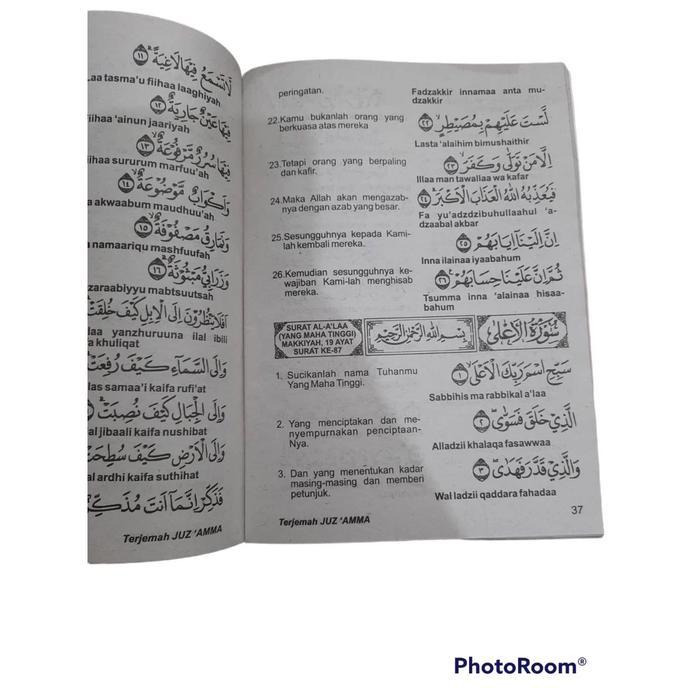 لَاتَسْمَعُ فِيْهَا لَاغِيَةً ۝١١
aa tasma'u fiihaa laaghiyah
فِيْهَا عَيْنٌ جَارِيَةٌ ۝١٢
fiihaa 'ainun jaariyah
فِيْهَا سُرُرٌ مَّرْفُوْعَةٌ ۝١٣
iihaa sururum marfuu'ah
وَاَكْوَابٌ مَّوْضُوْعَةٌ ۝١٤
a akwaabum maudhuu'ah
وَنَمَارِقُ مَصْفُوْفَةٌ ۝١٥
a namaariqu mashfuufah
وَزَرَابِيُّ مَبْثُوْثَةٌ ۝١٦
zaraabiyyu mabtsuutsah
اَفَلَا يَنْظُرُوْنَ اِلَى الْاِبِلِ كَيْفَ خُلِقَتْ
laa yanzhuruuna ilal ibili
fa khuliqat
وَاِلَى السَّمَآءِ كَيْفَ رُفِعَتْ
las samaa'i kaifa rufi'at
وَاِلَى الْجِبَالِ كَيْفَ نُصِبَتْ
al jibaali kaifa nushibat
وَاِلَى الْاَرْضِ كَيْفَ سُطِحَتْ
al ardhi kaifa suthihat
فَذَكِّرْ اِنَّمَآ اَنْتَ مُذَكِّرٌ
Terjemah JUZ 'AMMA
peringatan.
Fadzakkir innamaa anta mu-
dzakkir
22. Kamu bukanlah orang yang
berkuasa atas mereka
لَسْتَ عَلَيْهِمْ بِمُصَيْطِرٍ ۝٢٢
Lasta 'alaihim bimushaithir
23. Tetapi orang yang berpaling
dan kafir.
اِلَّا مَنْ تَوَلّٰى وَكَفَرَ ۝٢٣
Illaa man tawallaa wa kafar
24. Maka Allah akan mengazab-
nya dengan azab yang besar.
فَيُعَذِّبُهُ اللّٰهُ الْعَذَابَ الْاَكْبَرَ ۝٢٤
Fa yu'adzdzibuhullaahul 'a-
dzaabal akbar
25. Sesungguhnya kepada Kami-
lah kembali mereka.
اِنَّ اِلَيْنَآ اِيَابَهُمْ ۝٢٥
Inna ilainaa iyaabahum
26. Kemudian sesungguhnya ke-
wajiban Kami-lah menghisab
mereka.
ثُمَّ اِنَّ عَلَيْنَا حِسَابَهُمْ ۝٢٦
Tsumma inna 'alainaa hisaa-
bahum
SURAT AL-A'LAA
(YANG MAHA TINGGI)
MAKKIYAH, 19 AYAT
SURAT KE-87
بِسْمِ اللّٰهِ الرَّحْمٰنِ الرَّحِيْمِ
سُوْرَةُ الْاَعْلٰى
1. Sucikanlah nama Tuhanmu
Yang Maha Tinggi.
سَبِّحِ اسْمَ رَبِّكَ الْاَعْلَى ۝١
Sabbihis ma rabbikal a'laa
2. Yang menciptakan dan me-
nyempurnakan penciptaan-
Nya.
الَّذِيْ خَلَقَ فَسَوّٰى ۝٢
Alladzii khalaqa fasawwaa
3. Dan yang menentukan kadar
masing-masing dan memberi
petunjuk.
وَالَّذِيْ قَدَّرَ فَهَدٰى ۝٣
Wal ladzii qaddara fahadaa
Terjemah JUZ 'AMMA
37
PhotoRoom®